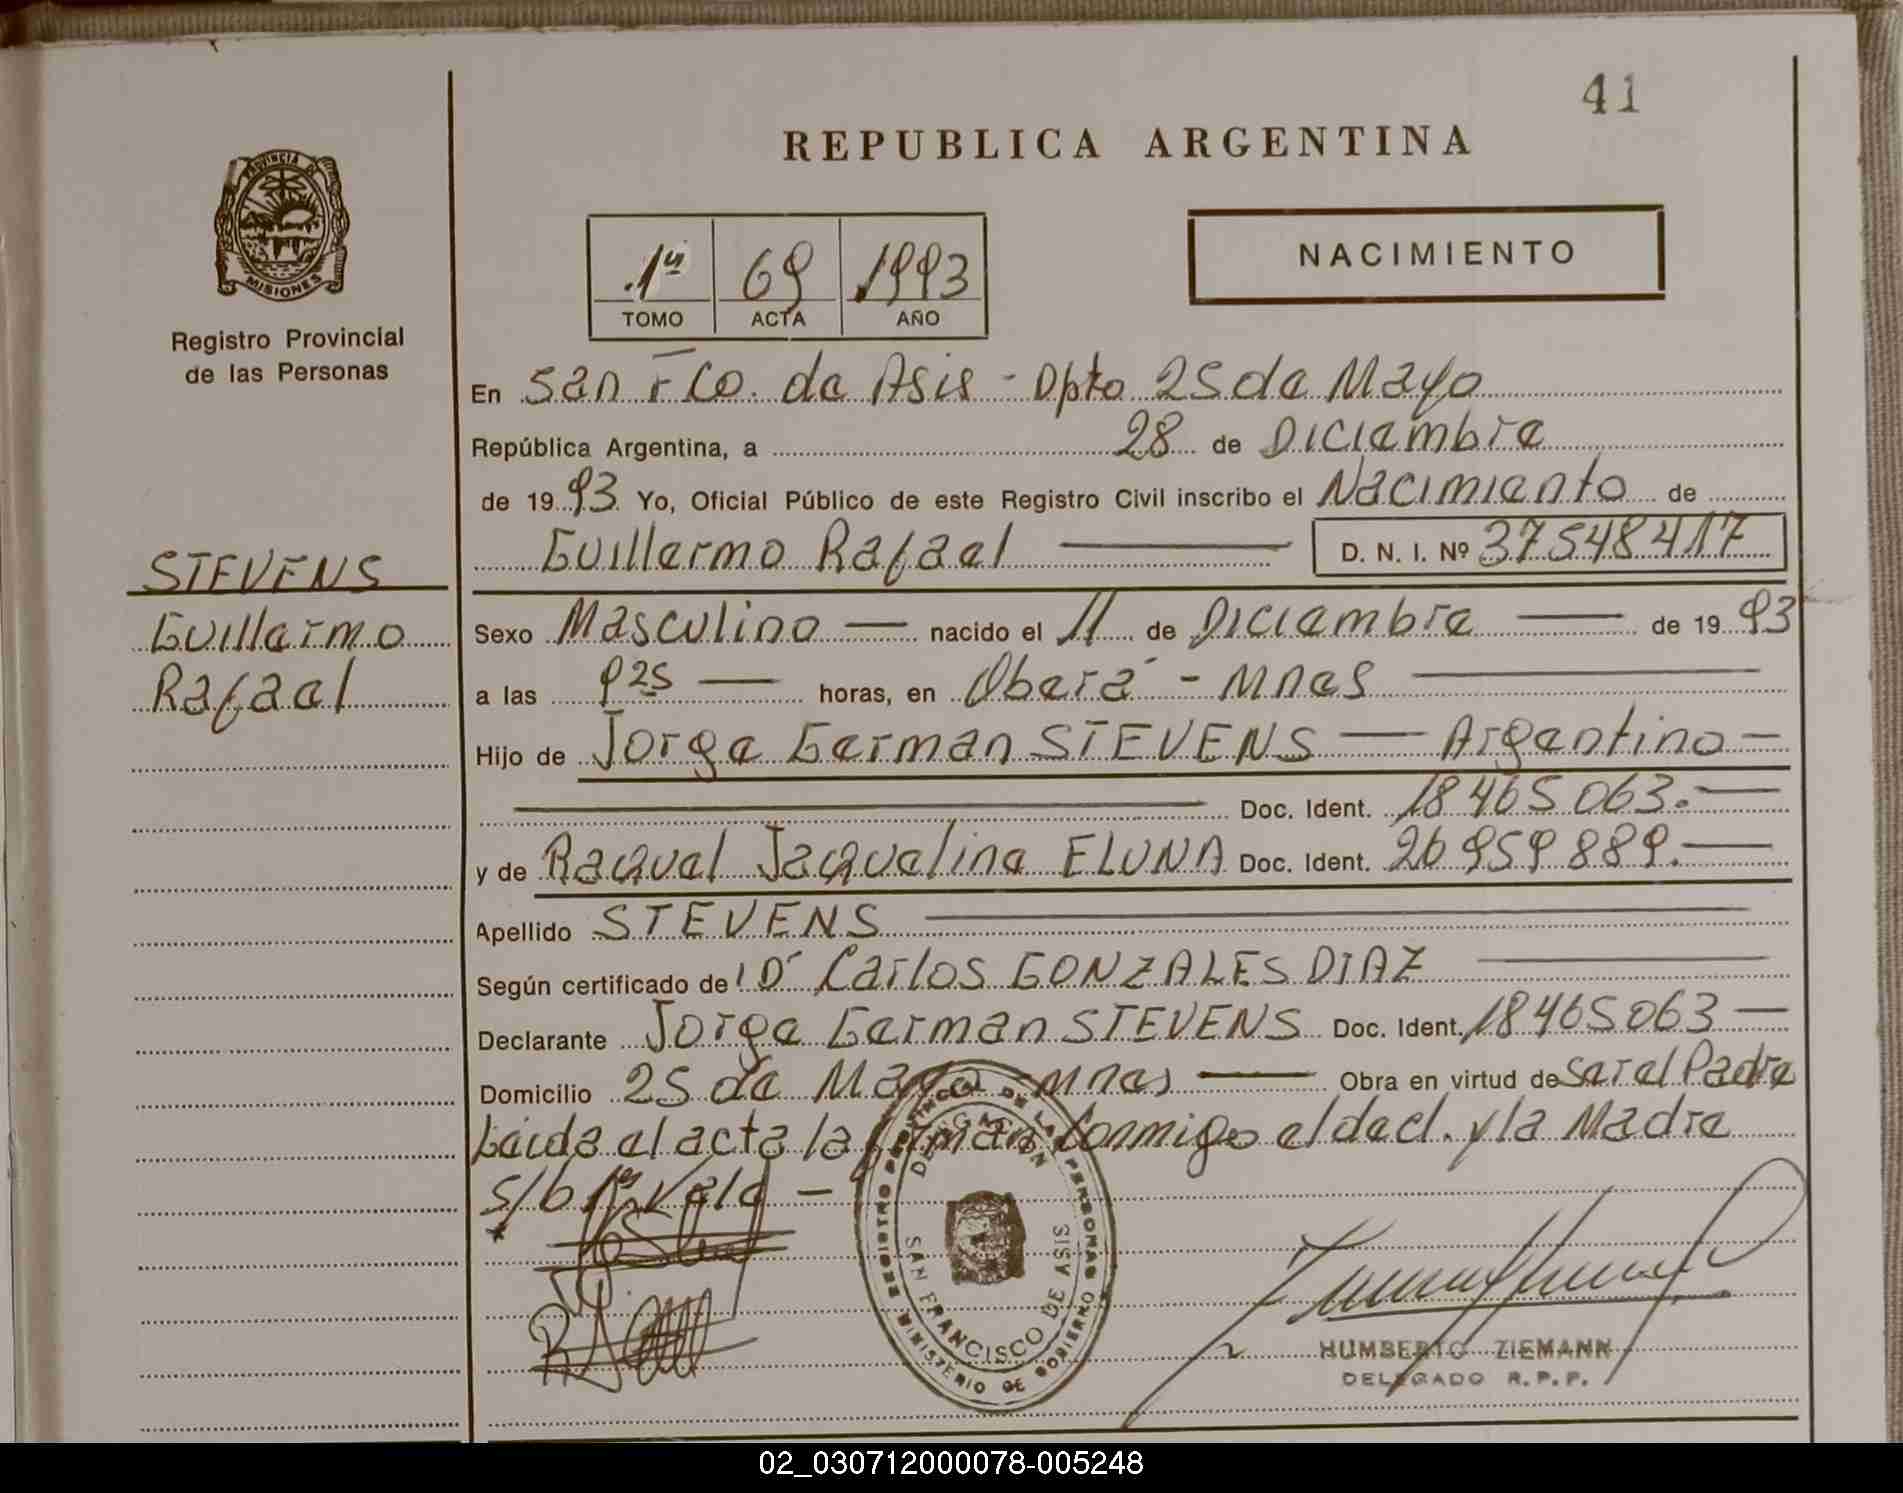 41
REPUBLICA ARGENTINA
PROVINCIA DE
MISIONES
Registro Provincial
de las Personas
NACIMIENTO
1º 69 1993
TOMO ACTA AÑO
En San Fco. de Asis - Dpto 25 de Mayo
República Argentina, a 28 de Diciembre
de 1993 Yo, Oficial Público de este Registro Civil inscribo el Nacimiento de
Guillermo Rafael D. N. I. Nº 37548417
STEVENS
Guillermo
Rafael
Sexo Masculino nacido el 11 de Diciembre de 1993
a las 925 horas, en Oberá - Mnes
Hijo de Jorge German STEVENS Argentino
Doc. Ident. 18465063.
y de Raquel Jaqueline ELUNA Doc. Ident. 26959889.
Apellido STEVENS
Según certificado de Dr Carlos GONZALES DIAZ
Declarante Jorge German STEVENS Doc. Ident. 18465063
Domicilio 25 de Mayo - Mnes Obra en virtud de Ser el Padre
Leida el acta la firman Conmigo el decl. y la Madre
s/b Vale
REGISTRO PROVINCIAL DE LAS PERSONAS
DELEGACION
SAN FRANCISCO DE ASIS
MINISTERIO DE GOBIERNO
HUMBERTO ZIEMANN
DELEGADO R.P.P.
02_030712000078-005248